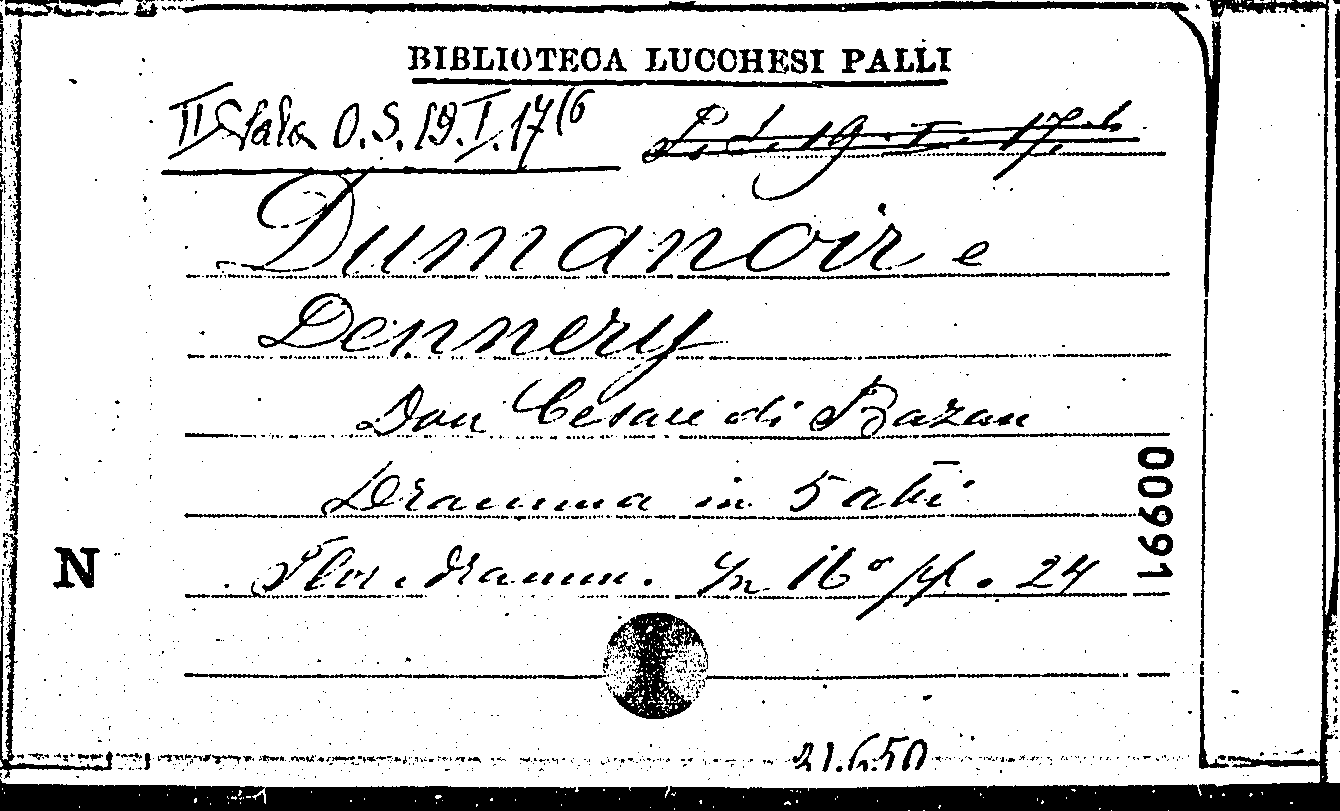 BIBLIOTECA LUCCHESI PALLI
II Sala O.S. 19.I.17(6
L. L. 19. I. 17.6
Dumanoir e
Dennery
Don Cesare di Bazan
Dramma in 5 atti
Flor. dramm. In 16° pp. 24
N
00991
21.6.50